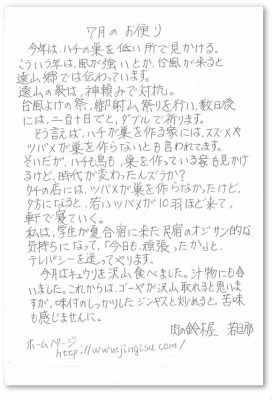 7月のお便り
今年は、ハチの巣を低い所で見かける。
こういう年は、風が強いとか、台風が来ると
遠山郷では伝わっています。
遠山の衆は、神頼みで対抗。
台風よけの祭、御射山祭りを行い、数日後
には、二百十日でと、ダブルで祈ります。
そう言えば、ハチが巣を作る家には、スズメや
ツバメが巣を作らないとも言われてます。
そいだが、ハチも鳥も、巣を作っている家も見かけ
るけど、時代が変わったんズラか?
ウチの店には、ツバメが巣を作らなかったけど、
夕方になると、若いツバメが10羽ほど来て、
軒で寝ていく。
私は、学生が夏合宿に来た民宿のオジサン的な
気持ちになって、「今日も、頑張ったか」と、
テレパシーを送ってやります。
今月はキュウリを沢山食べました。汁物にも合
いました。これからは、ゴーヤが沢山取れると思いま
すが、味付のしっかりしたジンギスと炒めると、苦味
も感じませんに。
肉の鈴木屋 若旦那
ホームページ
http://www.jingisu.com/